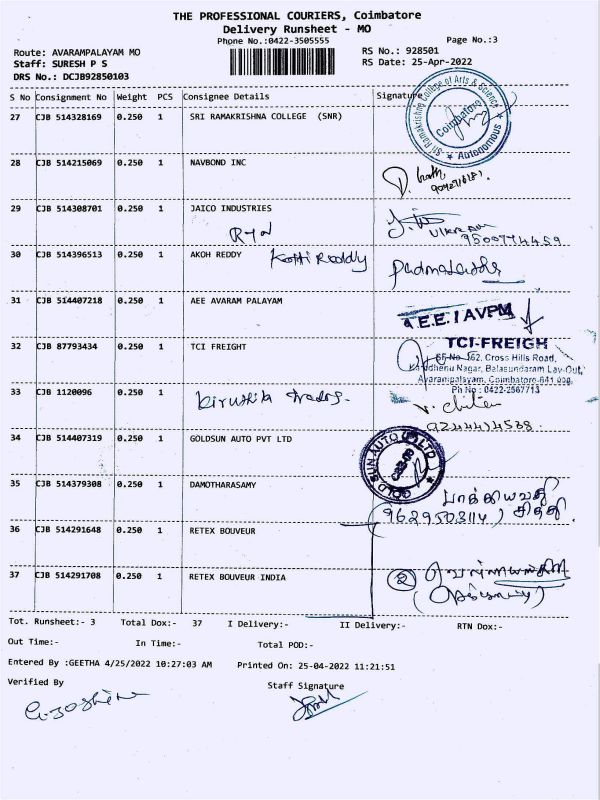 THE PROFESSIONAL COURIERS, Coimbatore
Delivery Runsheet - MO
Phone No.:0422-3505555
Page No.:3
Route: AVARAMPALAYAM MO
RS No.: 928501
Staff: SURESH P S
RS Date: 25-Apr-2022
DRS No.: DCJB92850103
S No Consignment No Weight PCS Consignee Details Signature
Sri Ramakrishna College of Arts & Science
Coimbatore
★ Autonomous ★
27 CJB 514328169 0.250 1 SRI RAMAKRISHNA COLLEGE (SNR)
28 CJB 514215069 0.250 1 NAVBOND INC
29 CJB 514308701 0.250 1 JAICO INDUSTRIES
VIKRAM
9500774459
30 CJB 514396513 0.250 1 AKOH REDDY Kotti Reddy
31 CJB 514407218 0.250 1 AEE AVARAM PALAYAM
A.E.E. / AVPM
32 CJB 87793434 0.250 1 TCI FREIGHT
TCI-FREIGH
Cross Hills Road,
Nagar, Balasundaram Lay-Out,
Avarampalayam, Coimbatore-641 006
Ph No : 0422-2567713
33 CJB 1120096 0.250 1 Kirushika traders.
34 CJB 514407319 0.250 1 GOLDSUN AUTO PVT LTD
GOLD SUN AUTO (P) LTD
35 CJB 514379308 0.250 1 DAMOTHARASAMY
36 CJB 514291648 0.250 1 RETEX BOUVEUR
37 CJB 514291708 0.250 1 RETEX BOUVEUR INDIA
2
Tot. Runsheet:- 3 Total Dox:- 37 I Delivery:- II Delivery:- RTN Dox:-
Out Time:- In Time:- Total POD:-
Entered By :GEETHA 4/25/2022 10:27:03 AM Printed On: 25-04-2022 11:21:51
Verified By Staff Signature